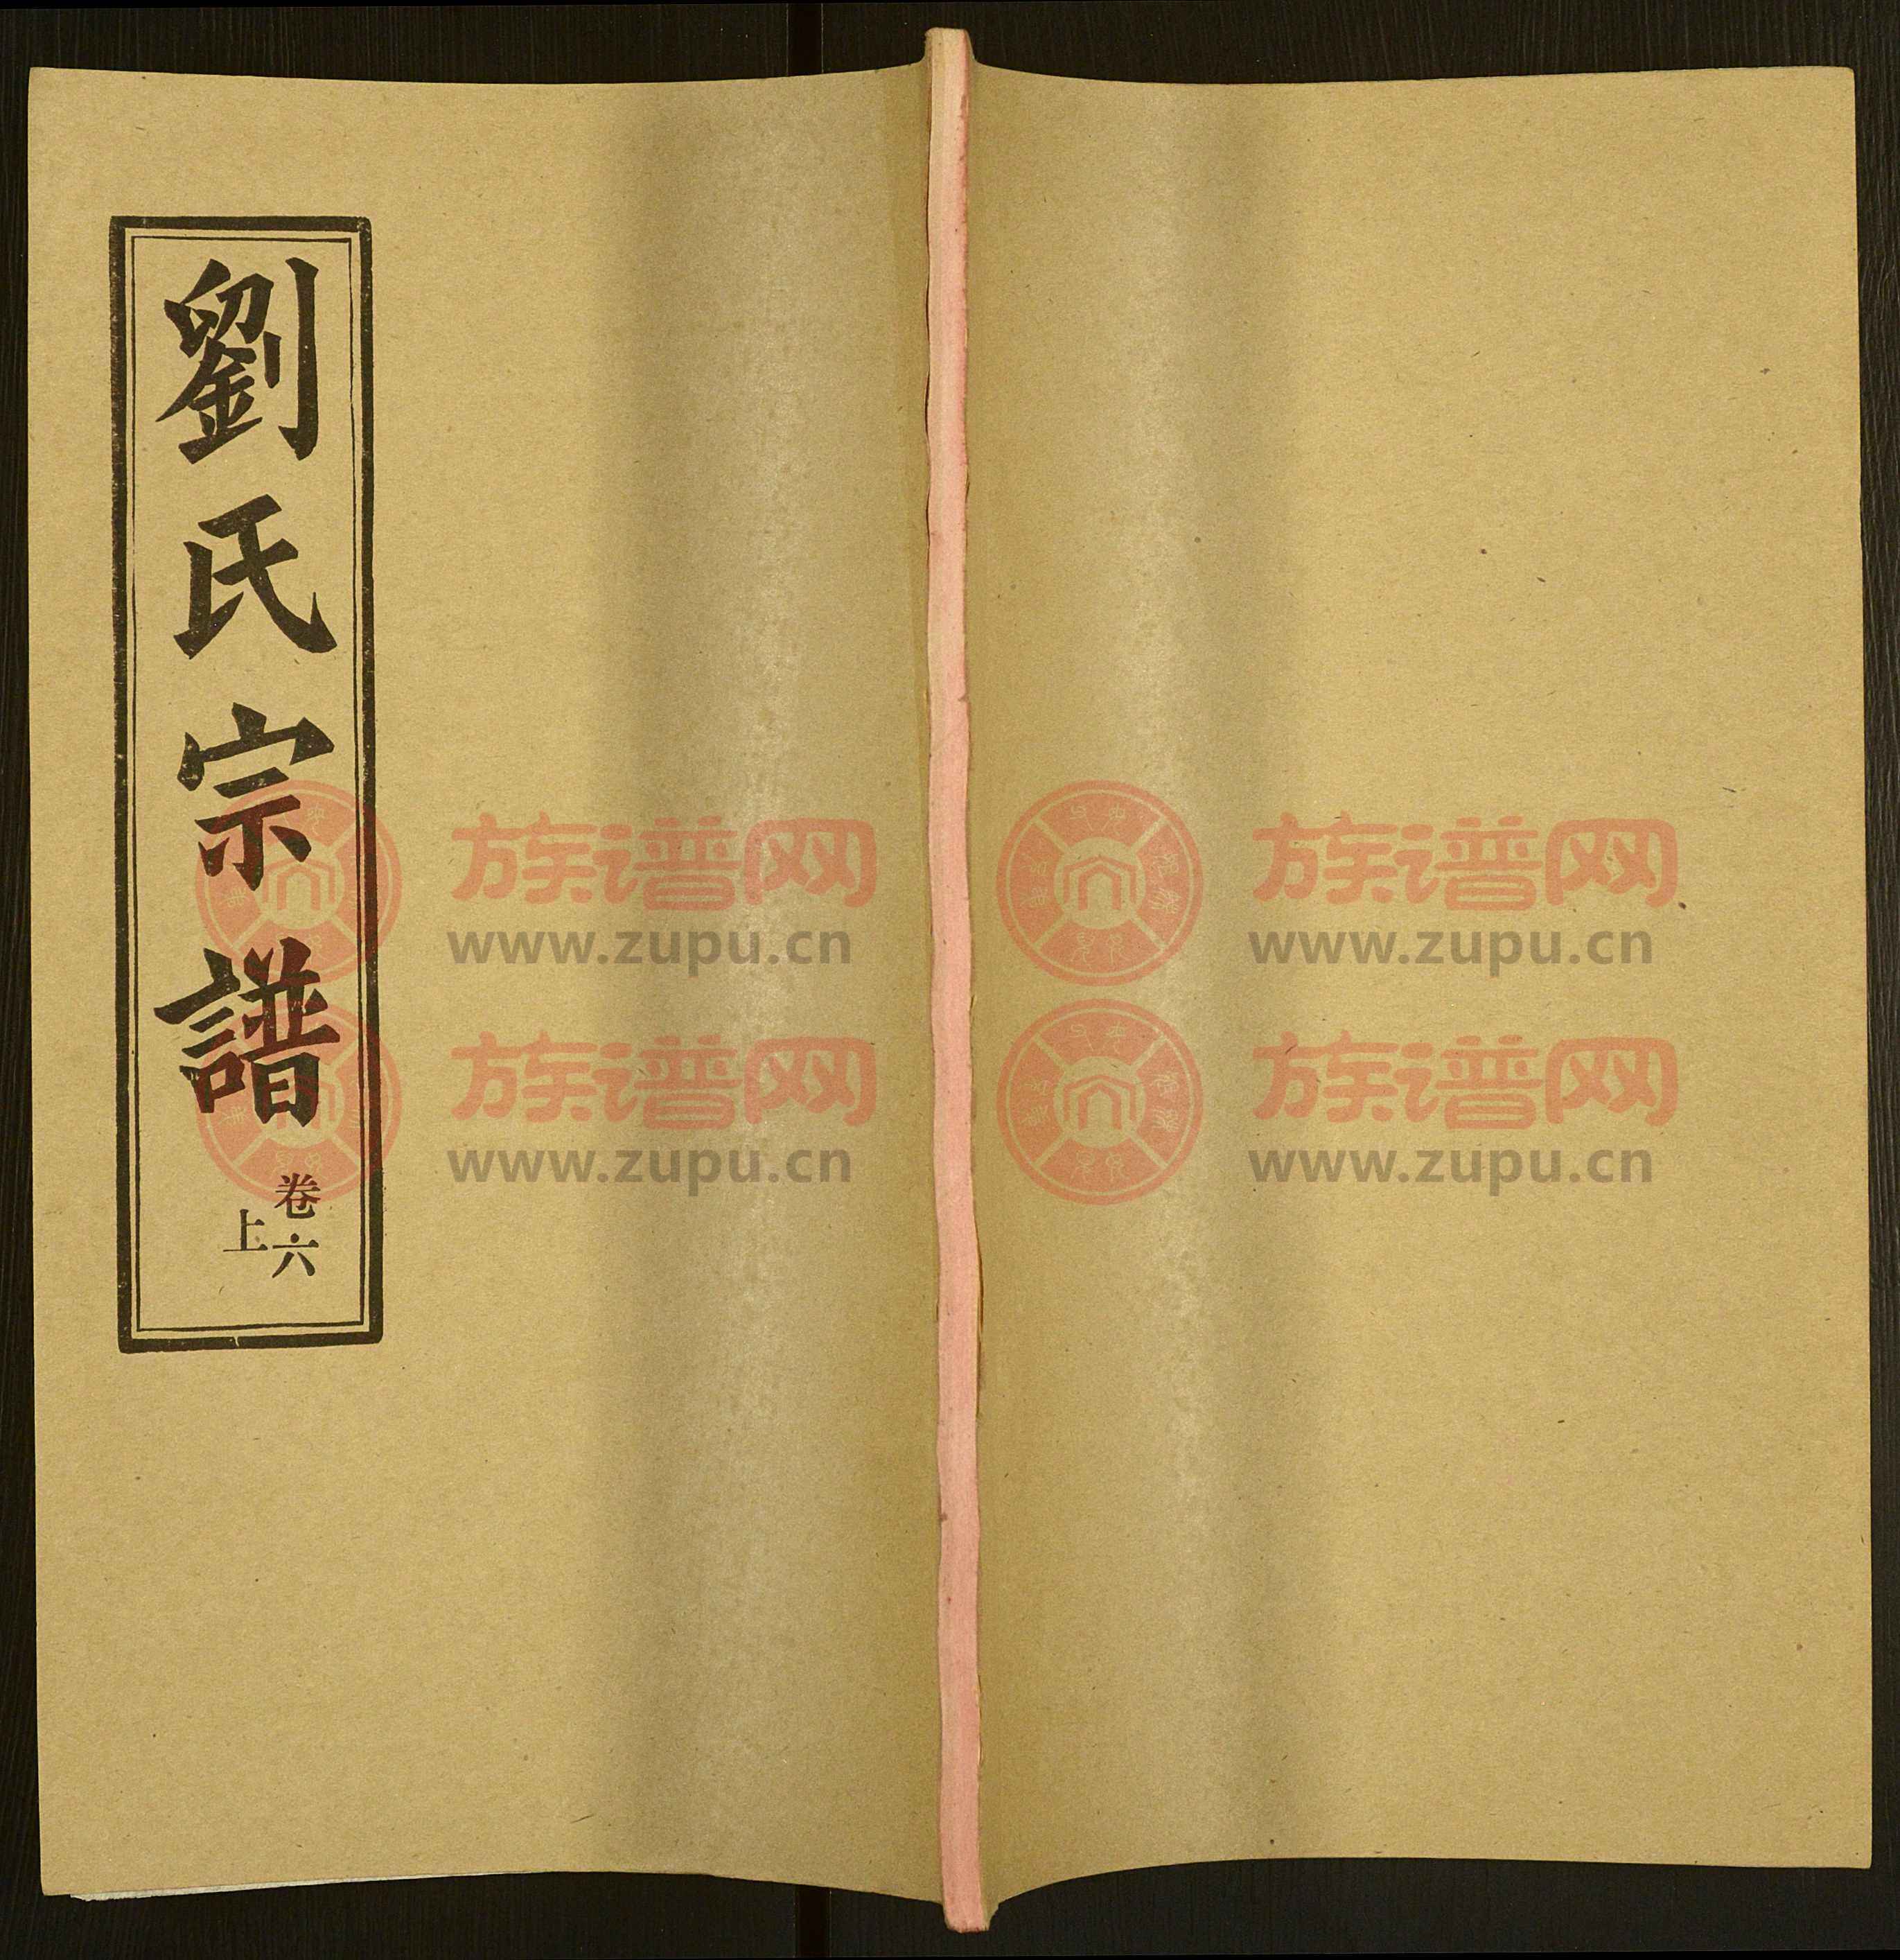 劉氏宗譜
卷六
上
族谱网
www.zupu.cn
族谱网
www.zupu.cn
族谱网
www.zupu.cn
族谱网
www.zupu.cn